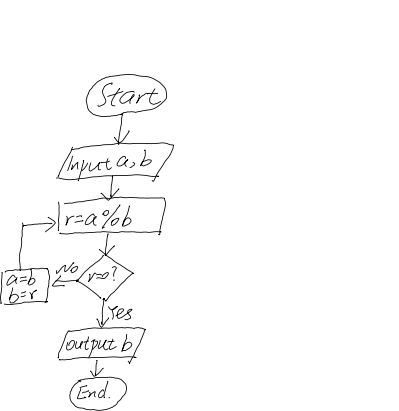 Start
Input a,b
r=a%b
r=0?
No
a=b
b=r
Yes
output b
End.